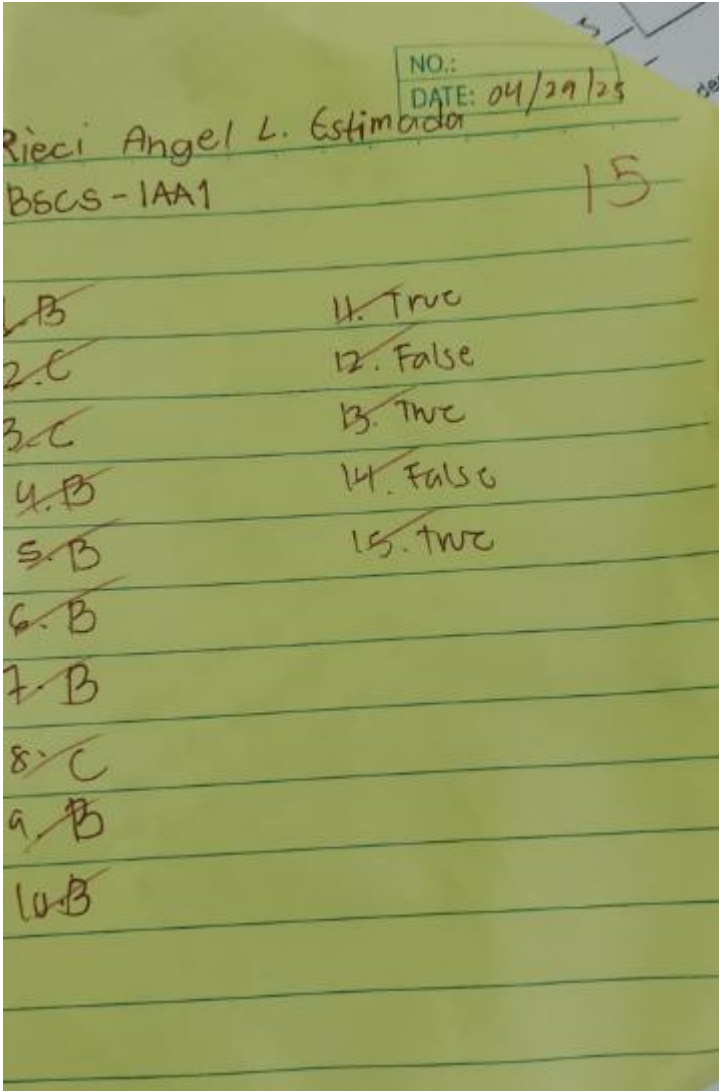 NO.:
DATE: 04/29/25
Rieci Angel L. Estimada
BSCS-1AA1
15
1. B
2. C
3. C
4. B
5. B
6. B
7. B
8. C
9. B
10. B
11. True
12. False
13. True
14. False
15. true